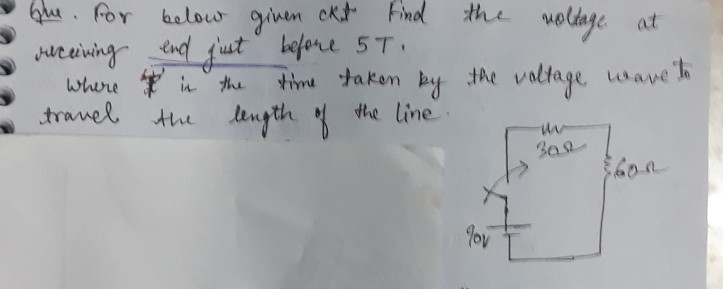 Que. For below given ckt Find the voltage at
receiving end just before 5T.
Where 'T' is the time taken by the voltage wave to
travel the length of the line.
30Ω
60Ω
90V